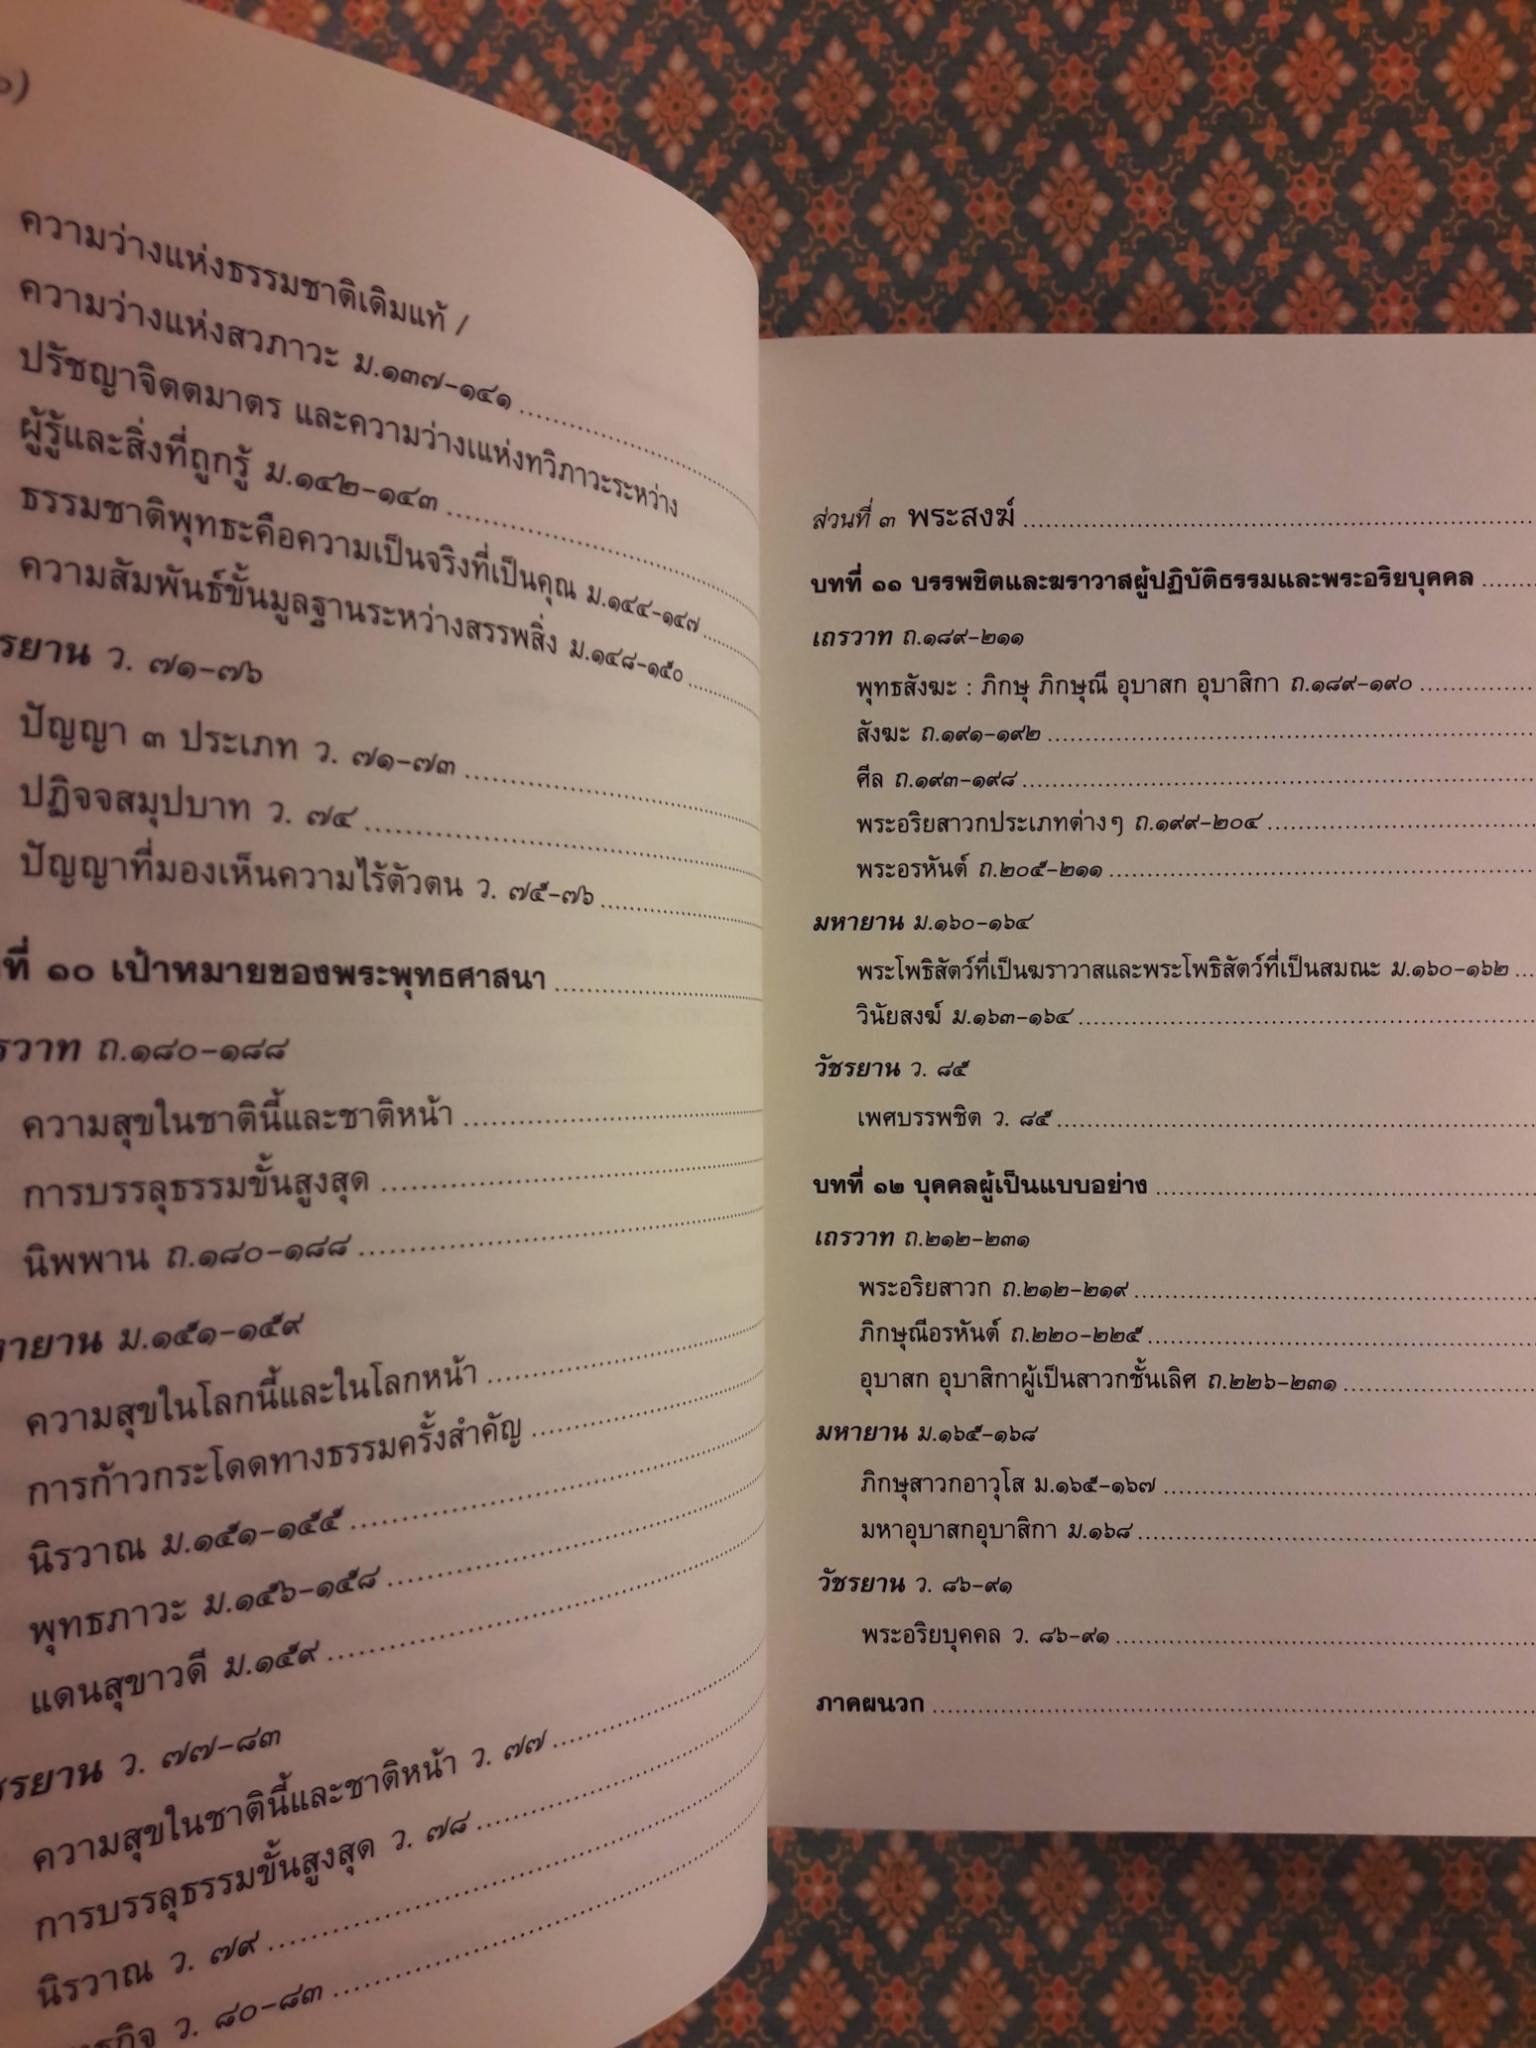 ความว่างแห่งธรรมชาติเดิมแท้ /
ความว่างแห่งสวภาวะ ม.๑๓๗-๑๔๑
ปรัชญาจิตตมาตร และความว่างแห่งทวิภาวะระหว่าง
ผู้รู้และสิ่งที่ถูกรู้ ม.๑๔๒-๑๔๓
ธรรมชาติพุทธะคือความเป็นจริงที่เป็นคุณ ม.๑๔๔-๑๔๗
ความสัมพันธ์ขั้นมูลฐานระหว่างสรรพสิ่ง ม.๑๔๘-๑๕๐
รยาน ว. ๗๑-๗๖
ปัญญา ๓ ประเภท ว. ๗๑-๗๓
ปฏิจจสมุปบาท ว. ๗๔
ปัญญาที่มองเห็นความไร้ตัวตน ว. ๗๕-๗๖
ที่ ๑๐ เป้าหมายของพระพุทธศาสนา
รวาท ถ.๑๘๐-๑๘๘
ความสุขในชาตินี้และชาติหน้า
การบรรลุธรรมขั้นสูงสุด
นิพพาน ถ.๑๘๐-๑๘๘
หายาน ม.๑๕๑-๑๕๙
ความสุขในโลกนี้และในโลกหน้า
การก้าวกระโดดทางธรรมครั้งสำคัญ
นิรวาณ ม.๑๕๑-๑๕๕
พุทธภาวะ ม.๑๕๖-๑๕๘
แดนสุขาวดี ม.๑๕๙
รยาน ว. ๗๗-๘๓
ความสุขในชาตินี้และชาติหน้า ว. ๗๗
การบรรลุธรรมขั้นสูงสุด ว. ๗๘
นิรวาณ ว. ๗๙
ว. ๘๐-๘๓
ส่วนที่ ๓ พระสงฆ์
บทที่ ๑๑ บรรพชิตและฆราวาสผู้ปฏิบัติธรรมและพระอริยบุคคล
เถรวาท ถ.๑๘๙-๒๑๑
พุทธสังฆะ : ภิกษุ ภิกษุณี อุบาสก อุบาสิกา ถ.๑๘๙-๑๙๐
สังฆะ ถ.๑๙๑-๑๙๒
ศีล ถ.๑๙๓-๑๙๘
พระอริยสาวกประเภทต่างๆ ถ.๑๙๙-๒๐๔
พระอรหันต์ ถ.๒๐๕-๒๑๑
มหายาน ม.๑๖๐-๑๖๔
พระโพธิสัตว์ที่เป็นฆราวาสและพระโพธิสัตว์ที่เป็นสมณะ ม.๑๖๐-๑๖๒
วินัยสงฆ์ ม.๑๖๓-๑๖๔
วัชรยาน ว. ๘๕
เพศบรรพชิต ว. ๘๕
บทที่ ๑๒ บุคคลผู้เป็นแบบอย่าง
เถรวาท ถ.๒๑๒-๒๓๑
พระอริยสาวก ถ.๒๑๒-๒๑๙
ภิกษุณีอรหันต์ ถ.๒๒๐-๒๒๕
อุบาสก อุบาสิกาผู้เป็นสาวกชั้นเลิศ ถ.๒๒๖-๒๓๑
มหายาน ม.๑๖๕-๑๖๘
ภิกษุสาวกอาวุโส ม.๑๖๕-๑๖๗
มหาอุบาสกอุบาสิกา ม.๑๖๘
วัชรยาน ว. ๘๖-๙๑
พระอริยบุคคล ว. ๘๖-๙๑
ภาคผนวก